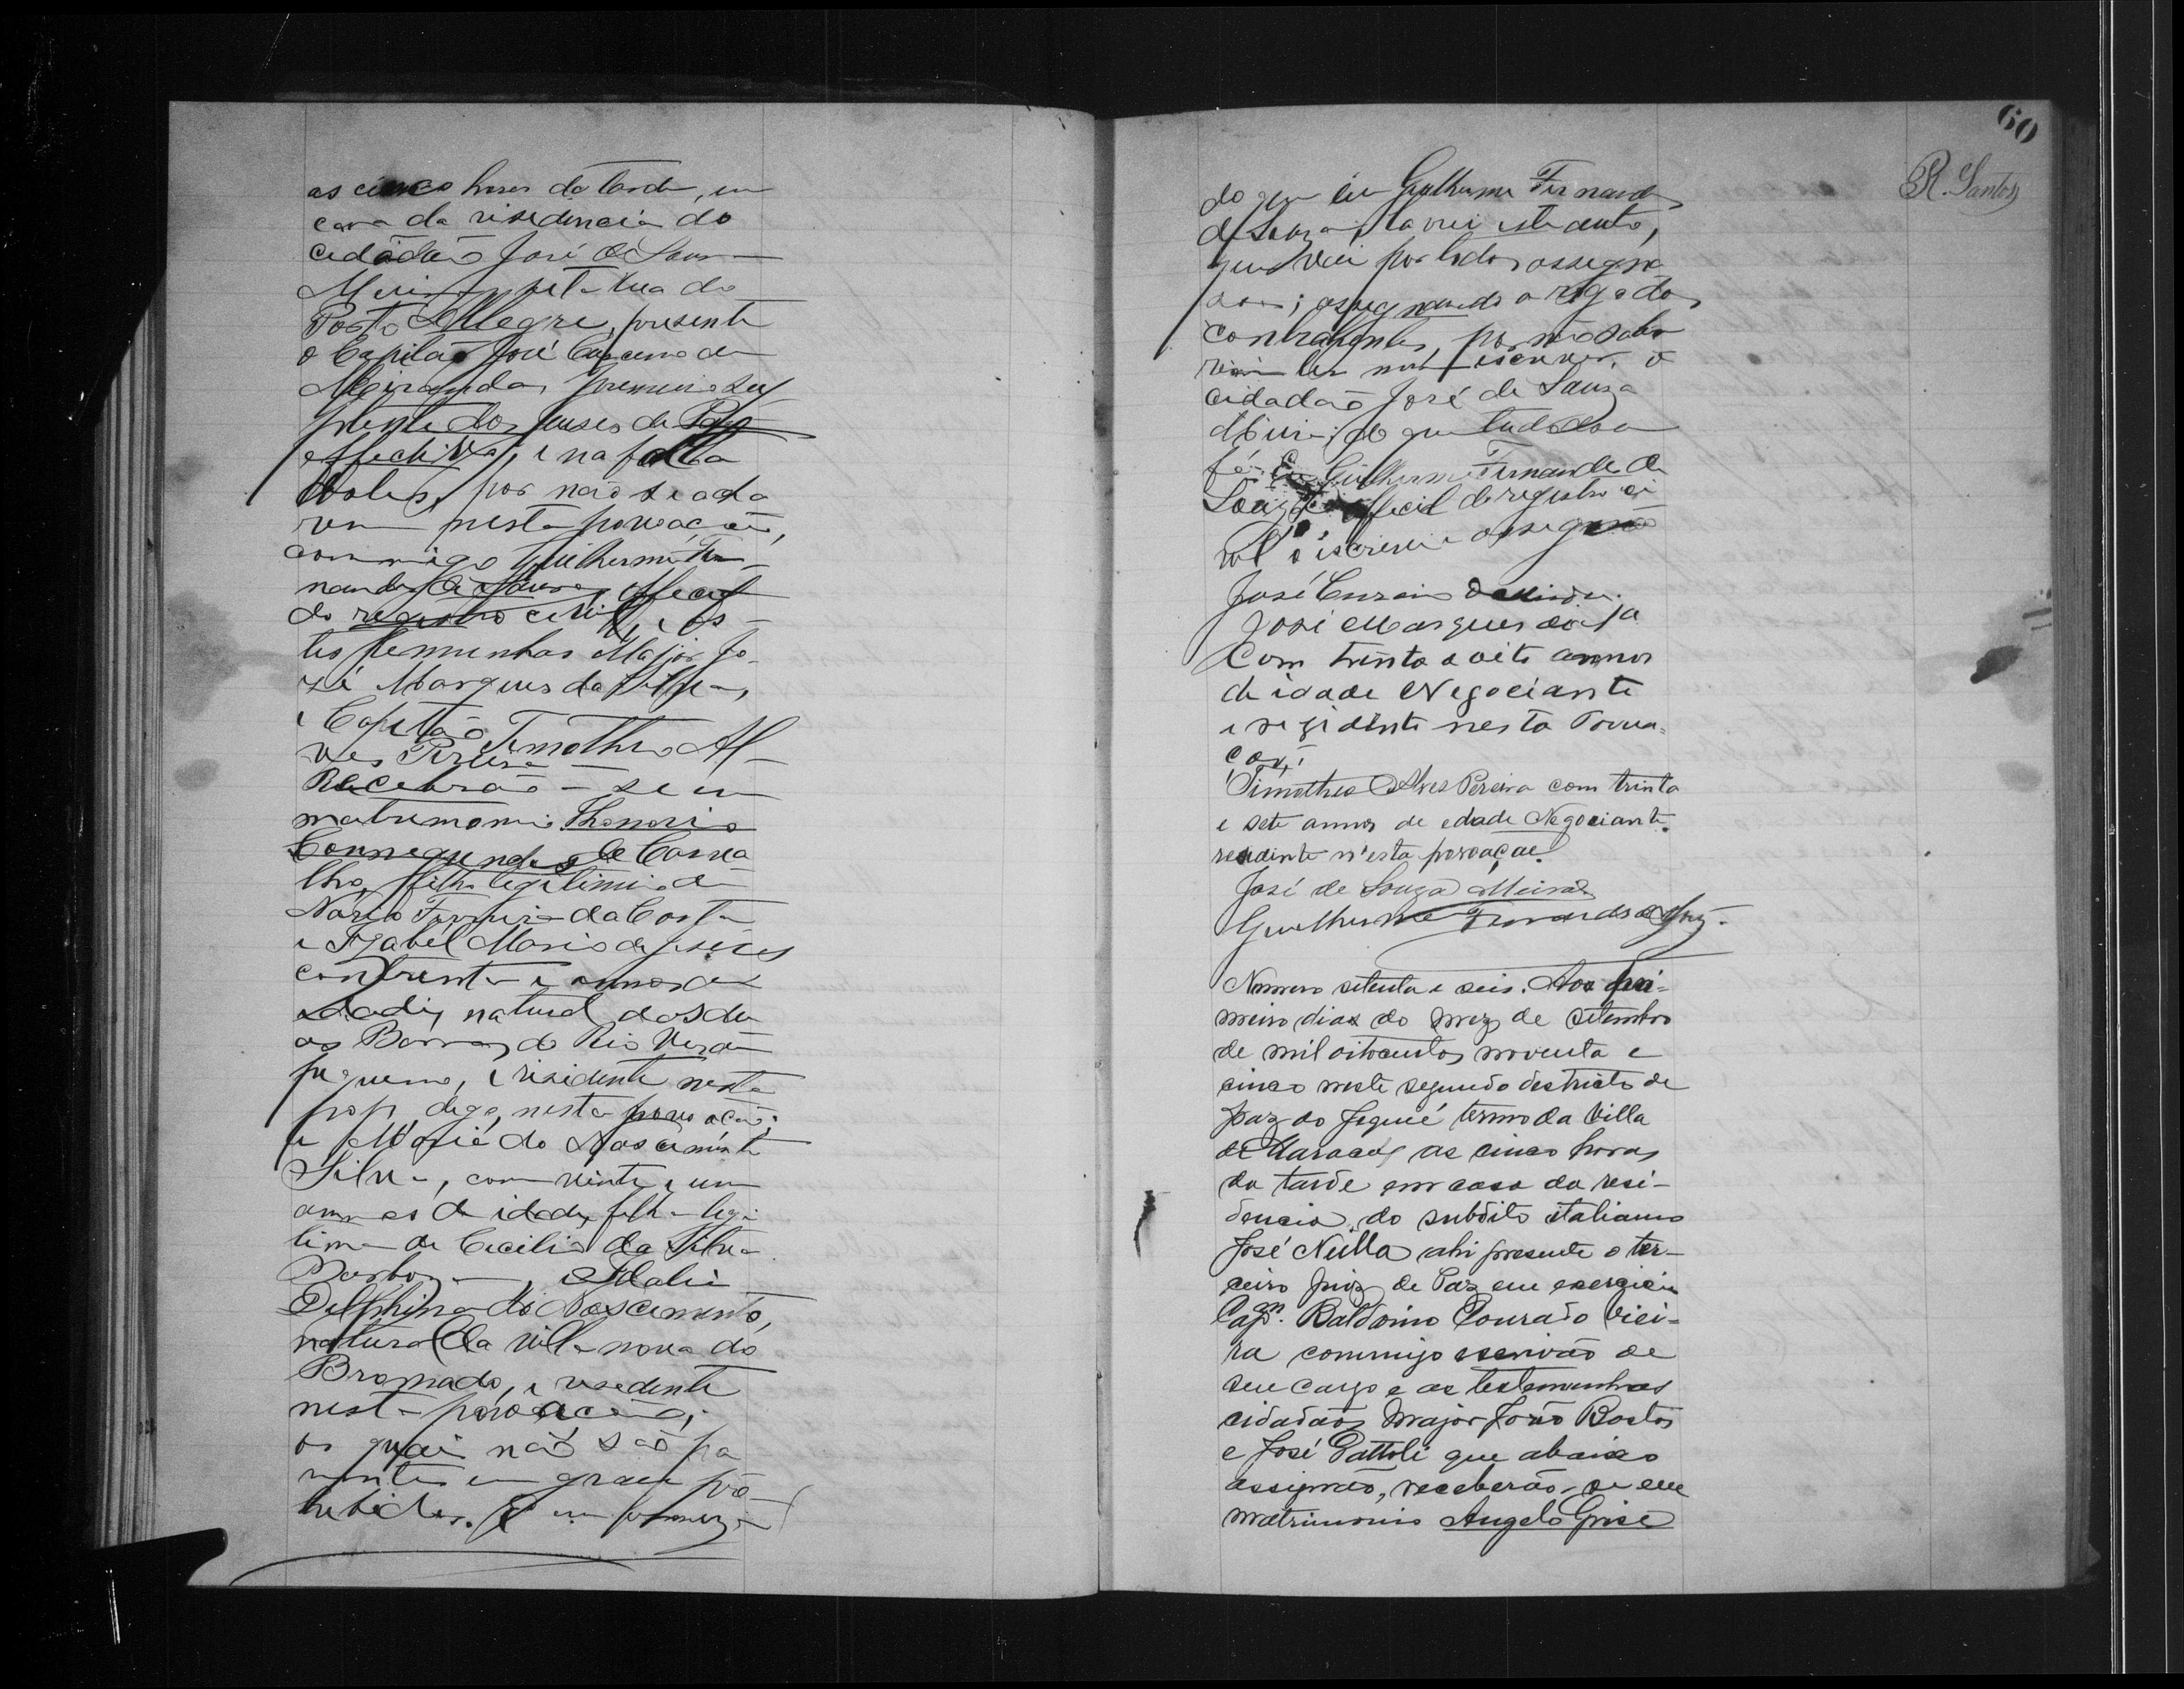 as cinco horas da tarde, em
casa da risidencia do
cidadão José de Sousa
Meira,
Porto Allegre, presente
o Capitão José
Meiranda, primeiro su
plente dos juises de Paz
effectivos, e na falta
por não se acha
rem nesta povoação,
commigo Guilherme Fer
nandes de Sousa, official
do registro civil, e as
tes temunhas Major Jo-
sé Marques da Silva,
e Capitão Timotheo Al-
ves Pereira
Receberão-se em
matrimonio
de Carva
lho, filho legitimo de
Ferreira da Costa
e Izabel Maria de Jesus
com trinta e annos de
idade, natural das du
as Barras do Rio
pequeno, e risidente nesta
digo, nesta povoação;
e Maria do Nascimento
Silva, com vinte e um
annos de idade, filha legi
tima de Cecilia da Silva
Barboza, e Idalia
Delphina do Nascimento,
natural da villa nova do
Bromado, e resedente
nesta povoação,
os quais não são pa
rentes em grau pro
hibido. E em firmeza
60
R. Santos
do que eu Guilherme Fernandes
de Souza, lavrei este auto,
que vai por todos assegna
dos; assegnando a rogo dos
contrahentes, por não sabe
rem ler nem escrever, o
cidadão José de Souza
Meira; do que tudo dou
fé. Eu Guilherme Fernandes de
Souza official do registro ci
vil o escrevi e assegno
José
José Marques da Sª
Com trinta e oito annos
de idade Negociante
e rezidente nesta Povoa-
ção,
Timotheo Alves Pereira com trinta
e sete annos de edade Negociante.
residente n'esta povoação.
José de Souza Meira
Guilherme Fernandes de Souz.
Numero setenta e seis. Aos pri-
meiro dias do mez de Setembro
de mil oitocentos noventa e
cinco neste segundo destricto de
paz do Jequié termo da Villa
de Maracás as cinco horas
da tarde em casa da resi-
dencia do subdito italiano
José Nulla ahi presente o ter-
ceiro Juiz de Paz em exercicio
Capm. Baldoino Dourado Viei-
ra commigo escrivão de
seu cargo e as testemunhas
cidadãos Major João Bastos
e José Gattoli que abaixo
assignão, receberão-se em
matrimonio Angelo Grise